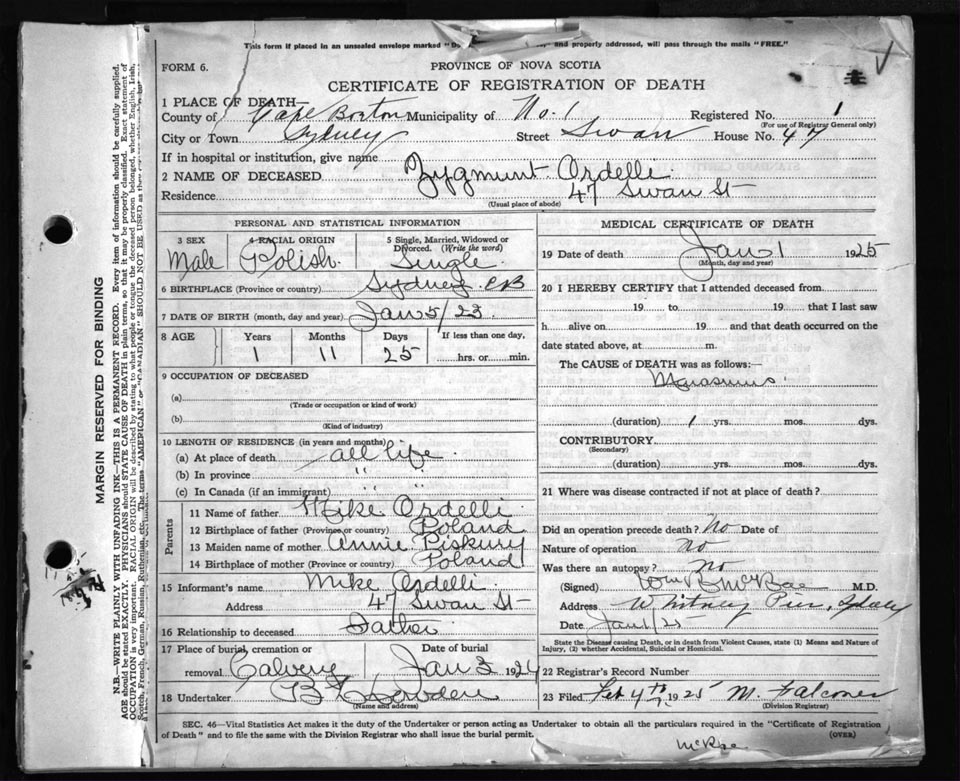 This form if placed in an unsealed envelope marked and properly addressed, will pass through the mails "FREE."
FORM 6.
PROVINCE OF NOVA SCOTIA
CERTIFICATE OF REGISTRATION OF DEATH
1 PLACE OF DEATH
County of Cape Breton Municipality of No. 1 Registered No. 1
(For use of Registrar General only)
City or Town Sydney Street Swan House No. 47
If in hospital or institution, give name
2 NAME OF DECEASED Zygmunt Ordelli
Residence 47 Swan St
(Usual place of abode)
PERSONAL AND STATISTICAL INFORMATION
3 SEX Male
4 RACIAL ORIGIN Polish
5 Single, Married, Widowed or Divorced. (Write the word) Single
6 BIRTHPLACE (Province or country) Sydney CB
7 DATE OF BIRTH (month, day and year) Jan 5/23
8 AGE Years Months Days If less than one day,
1 11 25 hrs. or min.
9 OCCUPATION OF DECEASED
(a)
(Trade or occupation or kind of work)
(b)
(Kind of industry)
10 LENGTH OF RESIDENCE (in years and months)
(a) At place of death all life
(b) In province " "
(c) In Canada (if an immigrant) " "
Parents
11 Name of father Mike Ordelli
12 Birthplace of father (Province or country) Poland
13 Maiden name of mother Annie Piskury
14 Birthplace of mother (Province or country) Poland
15 Informant's name Mike Ordelli
Address 47 Swan St
16 Relationship to deceased Father
17 Place of burial, cremation or removal Calvery
Date of burial Jan 3 1924
18 Undertaker
(Name and address)
MEDICAL CERTIFICATE OF DEATH
19 Date of death Jan 1 1925
(Month, day and year)
20 I HEREBY CERTIFY that I attended deceased from
19 to 19 that I last saw
h alive on 19 and that death occurred on
date stated above, at m.
The CAUSE of DEATH was as follows:—
(duration) 1 yrs. mos. dys.
CONTRIBUTORY
(Secondary)
(duration) yrs. mos. dys.
21 Where was disease contracted if not at place of death?
Did an operation precede death? No Date of
Nature of operation no
Was there an autopsy? No
(Signed) McRae M.D.
Address Whitney Pier, Sydney
Date Jan 1/25
State the Disease causing Death, or in death from Violent Causes, state (1) Means and Nature of Injury, (2) whether Accidental, Suicidal or Homicidal.
22 Registrar's Record Number
23 Filed Feb 4th 1925 M. Falconer
(Division Registrar)
SEC. 46—Vital Statistics Act makes it the duty of the Undertaker or person acting as Undertaker to obtain all the particulars required in the "Certificate of Registration
of Death" and to file the same with the Division Registrar who shall issue the burial permit. (OVER)
McRae
MARGIN RESERVED FOR BINDING
N.B.—WRITE PLAINLY WITH UNFADING INK—THIS IS A PERMANENT RECORD. Every item of information should be carefully supplied.
AGE should be stated EXACTLY. PHYSICIANS should STATE CAUSE OF DEATH in plain terms, so that it may be properly classified. Exact statement of
OCCUPATION is very important. RACIAL ORIGIN will be described by stating to what people or tongue the deceased person belonged, whether English, Irish,
Scotch, French, German, Russian, Ruthenian, etc. The terms "AMERICAN" or "CANADIAN" SHOULD NOT BE USED